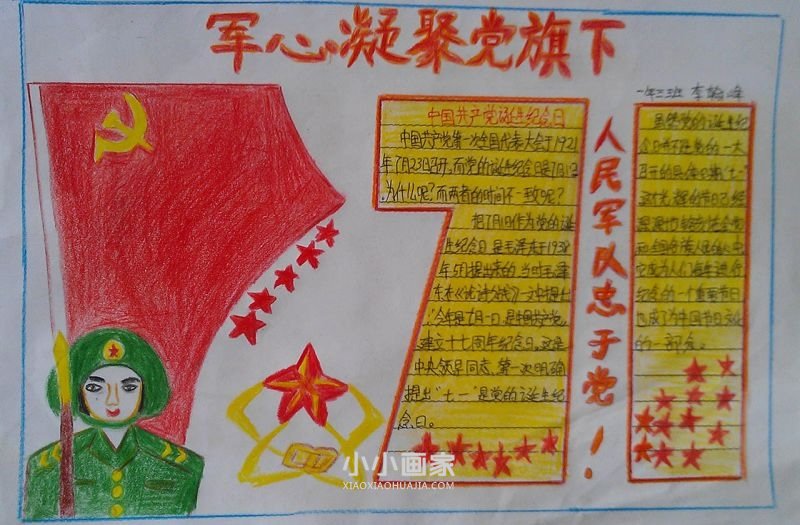 军心凝聚党旗下
一年三班 李
中国共产党诞生纪念日
中国共产党第一次全国代表大会于1921
年7月23日召开,而党的诞生纪念日是7月1日
为什么呢?而两者的时间不一致呢?
把7月1日作为党的诞
生纪念日,是毛泽东于1938
年5月提出来的,当时毛泽
东在《论持久战》一文中提出
"今年七月一日,是中国共产党
建立十七周年纪念日,这是
中央领导同志,第一次明确
提出"七一"是党的诞生纪
念日。
人民军队忠于党!
虽然党的诞生纪
念日并不是党的一大
召开的具体日期,"七一"
这个光辉的节日已经
全党
和全国各族人民的心中
它成为人们每年进行
纪念的一个重要节日
也成了为中国节日文化
的一部分。
小小画家
XIAOXIAOHUAJIA.COM